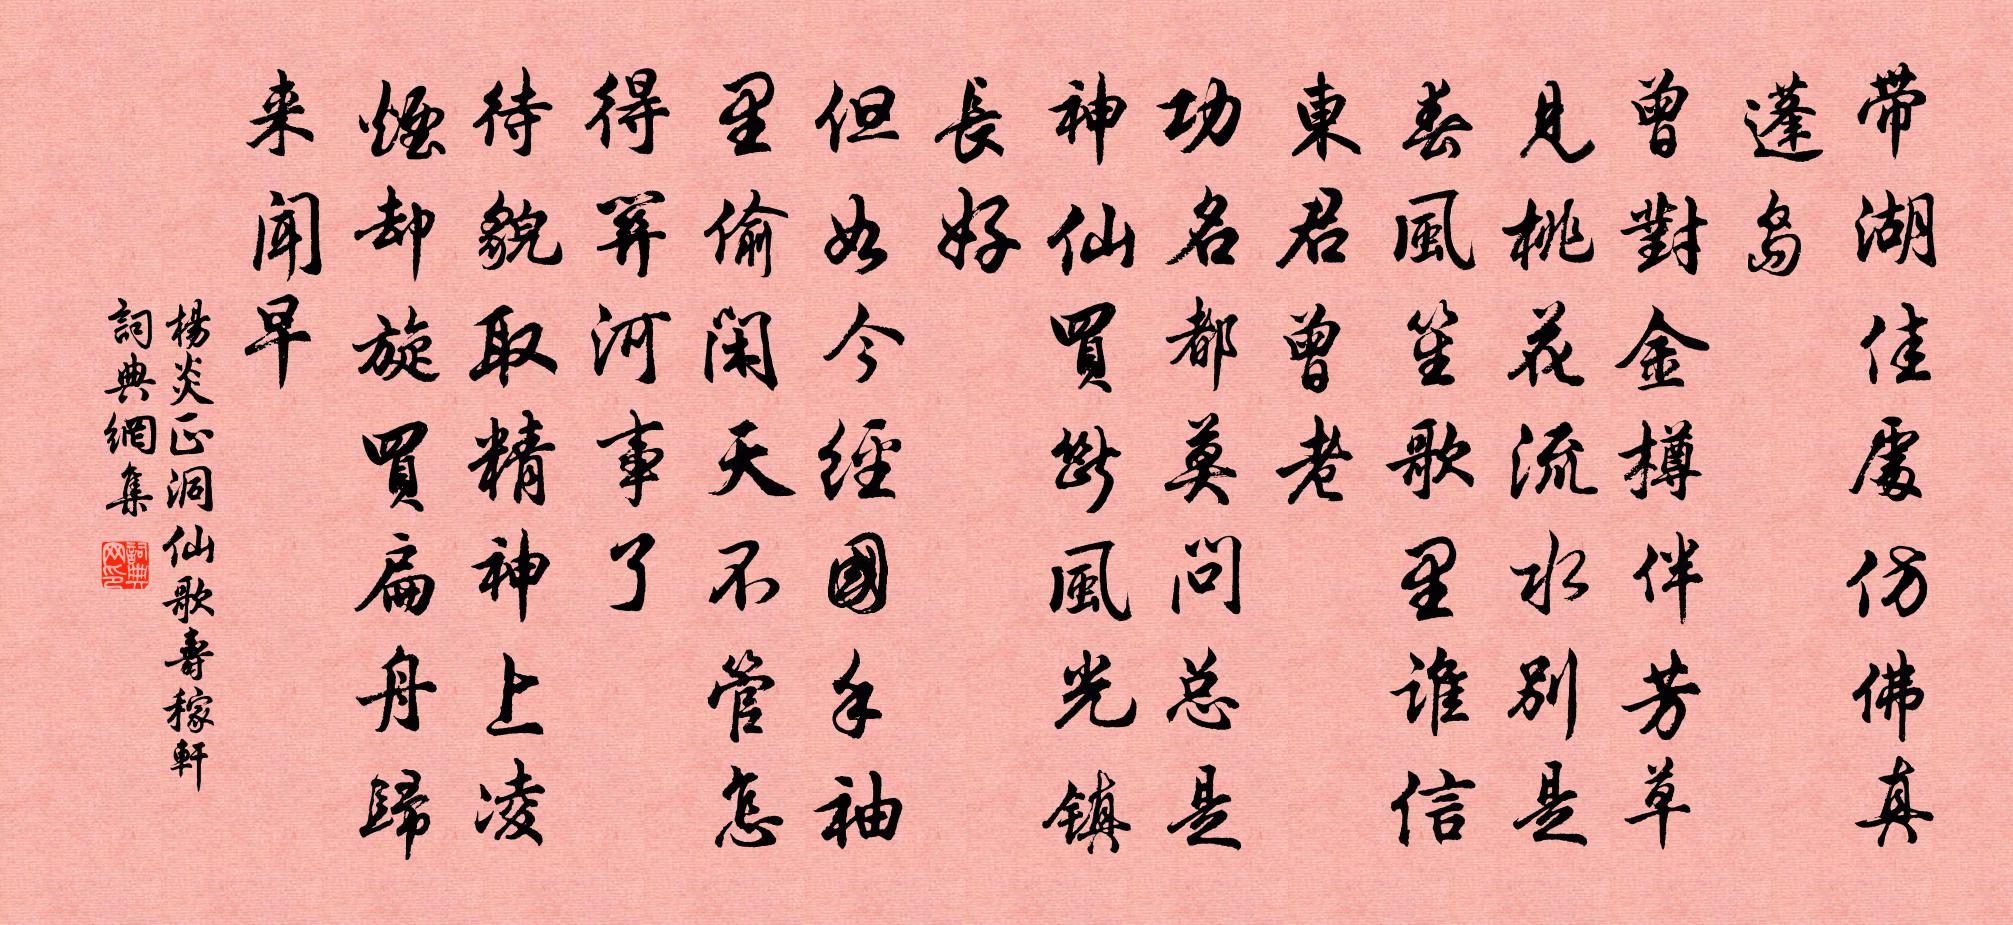 带湖佳處仿佛真
蓬島
曾對金樽伴芳草
見桃花流水別是
春風笙歌里誰信
東君曾老
功名都莫問总是
神仙買斷風光鎮
長好
但如今經國手袖
里偷閑天不管怎
得關河事了
待貌取精神上凌
煙却旋買扁舟歸
来聞早
楊炎正洞仙歌壽稼軒
詞典網集
詞典网印